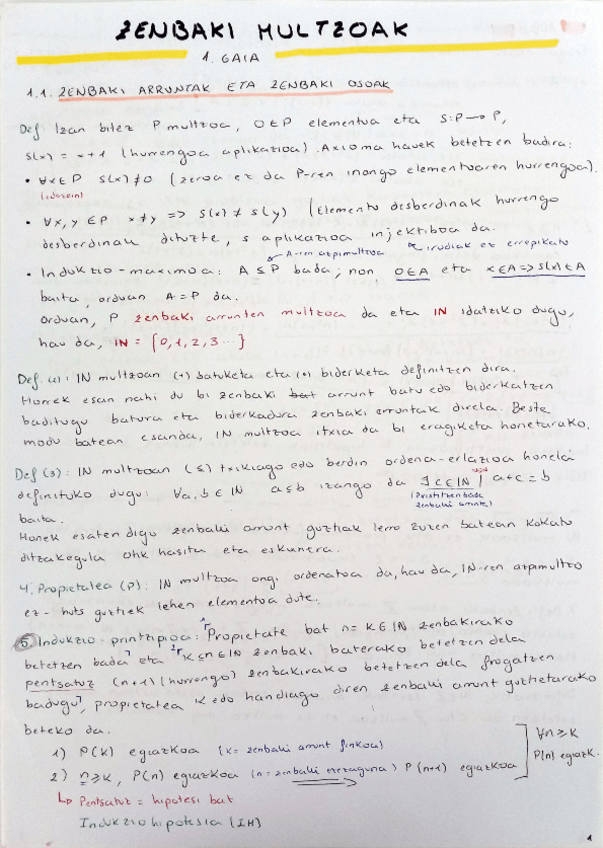 ZENBAKI MULTZOAK
1. GAIA
1.1. ZENBAKI ARRUNTAK ETA ZENBAKI OSOAK
Def Izan bitez P multzoa, 0∈P elementua eta s:P→P,
s(x) = x+1 (hurrengoa aplikazioa). Axioma hauek betetzen badira:
• ∀x∈P s(x)≠0 (zeroa ez da P-ren inongo elementuaren hurrengoa).
(edozein)
• ∀x,y ∈P x≠y => s(x) ≠ s(y) (Elementu desberdinak hurrengo
desberdinak dituzte, s aplikazioa injektiboa da.
A-ren azpimultzoa irudiak ez errepikatu
• Indukzio-maximoa: A ⊆ P bada; non 0∈A eta x∈A=>s(x)∈A
baita, orduan A=P da.
Orduan, P zenbaki arrunten multzoa da eta IN idatziko dugu,
hau da, IN = {0,1,2,3...}
Def (2): IN multzoan (+) batuketa eta (·) biderketa definitzen dira.
Horrek esan nahi du bi zenbaki bat arrunt batu edo biderkatzen
baditugu batura eta biderkadura zenbaki arruntak direla. Beste
modu batean esanda, IN multzoa itxia da bi eragiketa honetarako.
Def (3): IN multzoan (≤) txikiago edo berdin ordena-erlazioa honela
definituko dugu: ∀a,b ∈ IN a≤b izango da ∃c∈IN | a+c=b
(Existitzen bada
zenbaki arrunta)
baita.
Honek esaten digu zenbaki arrunt guztiak lerro zuzen batean kokatu
ditzakegula 0tik hasita eta eskuinera.
4. Propietatea (P): IN multzoa ongi ordenatoa da, hau da, IN-ren azpimultzo
ez-huts guztiek lehen elementua dute.
5. Indukzio-printzipioa: 1Propietate bat n=k∈IN zenbakirako
betetzen bada eta 2k≤n∈IN zenbaki baterako betetzen dela
pentsatuz (n+1) (hurrengo) zenbakirako betetzen dela frogatzen
badugu, propietatea k edo handiago diren zenbaki arrunt guztietarako
beteko da.
1) P(k) egiazkoa (k= zenbaki arrunt finkoa)
2) n≥k, P(n) egiazkoa (n= zenbaki ezezaguna) P(n+1) egiazkoa
∀n≥k
P(n) egiazk.
↳ Pentsatuz = hipotesi bat
Indukzio hipotesia (IH)
1